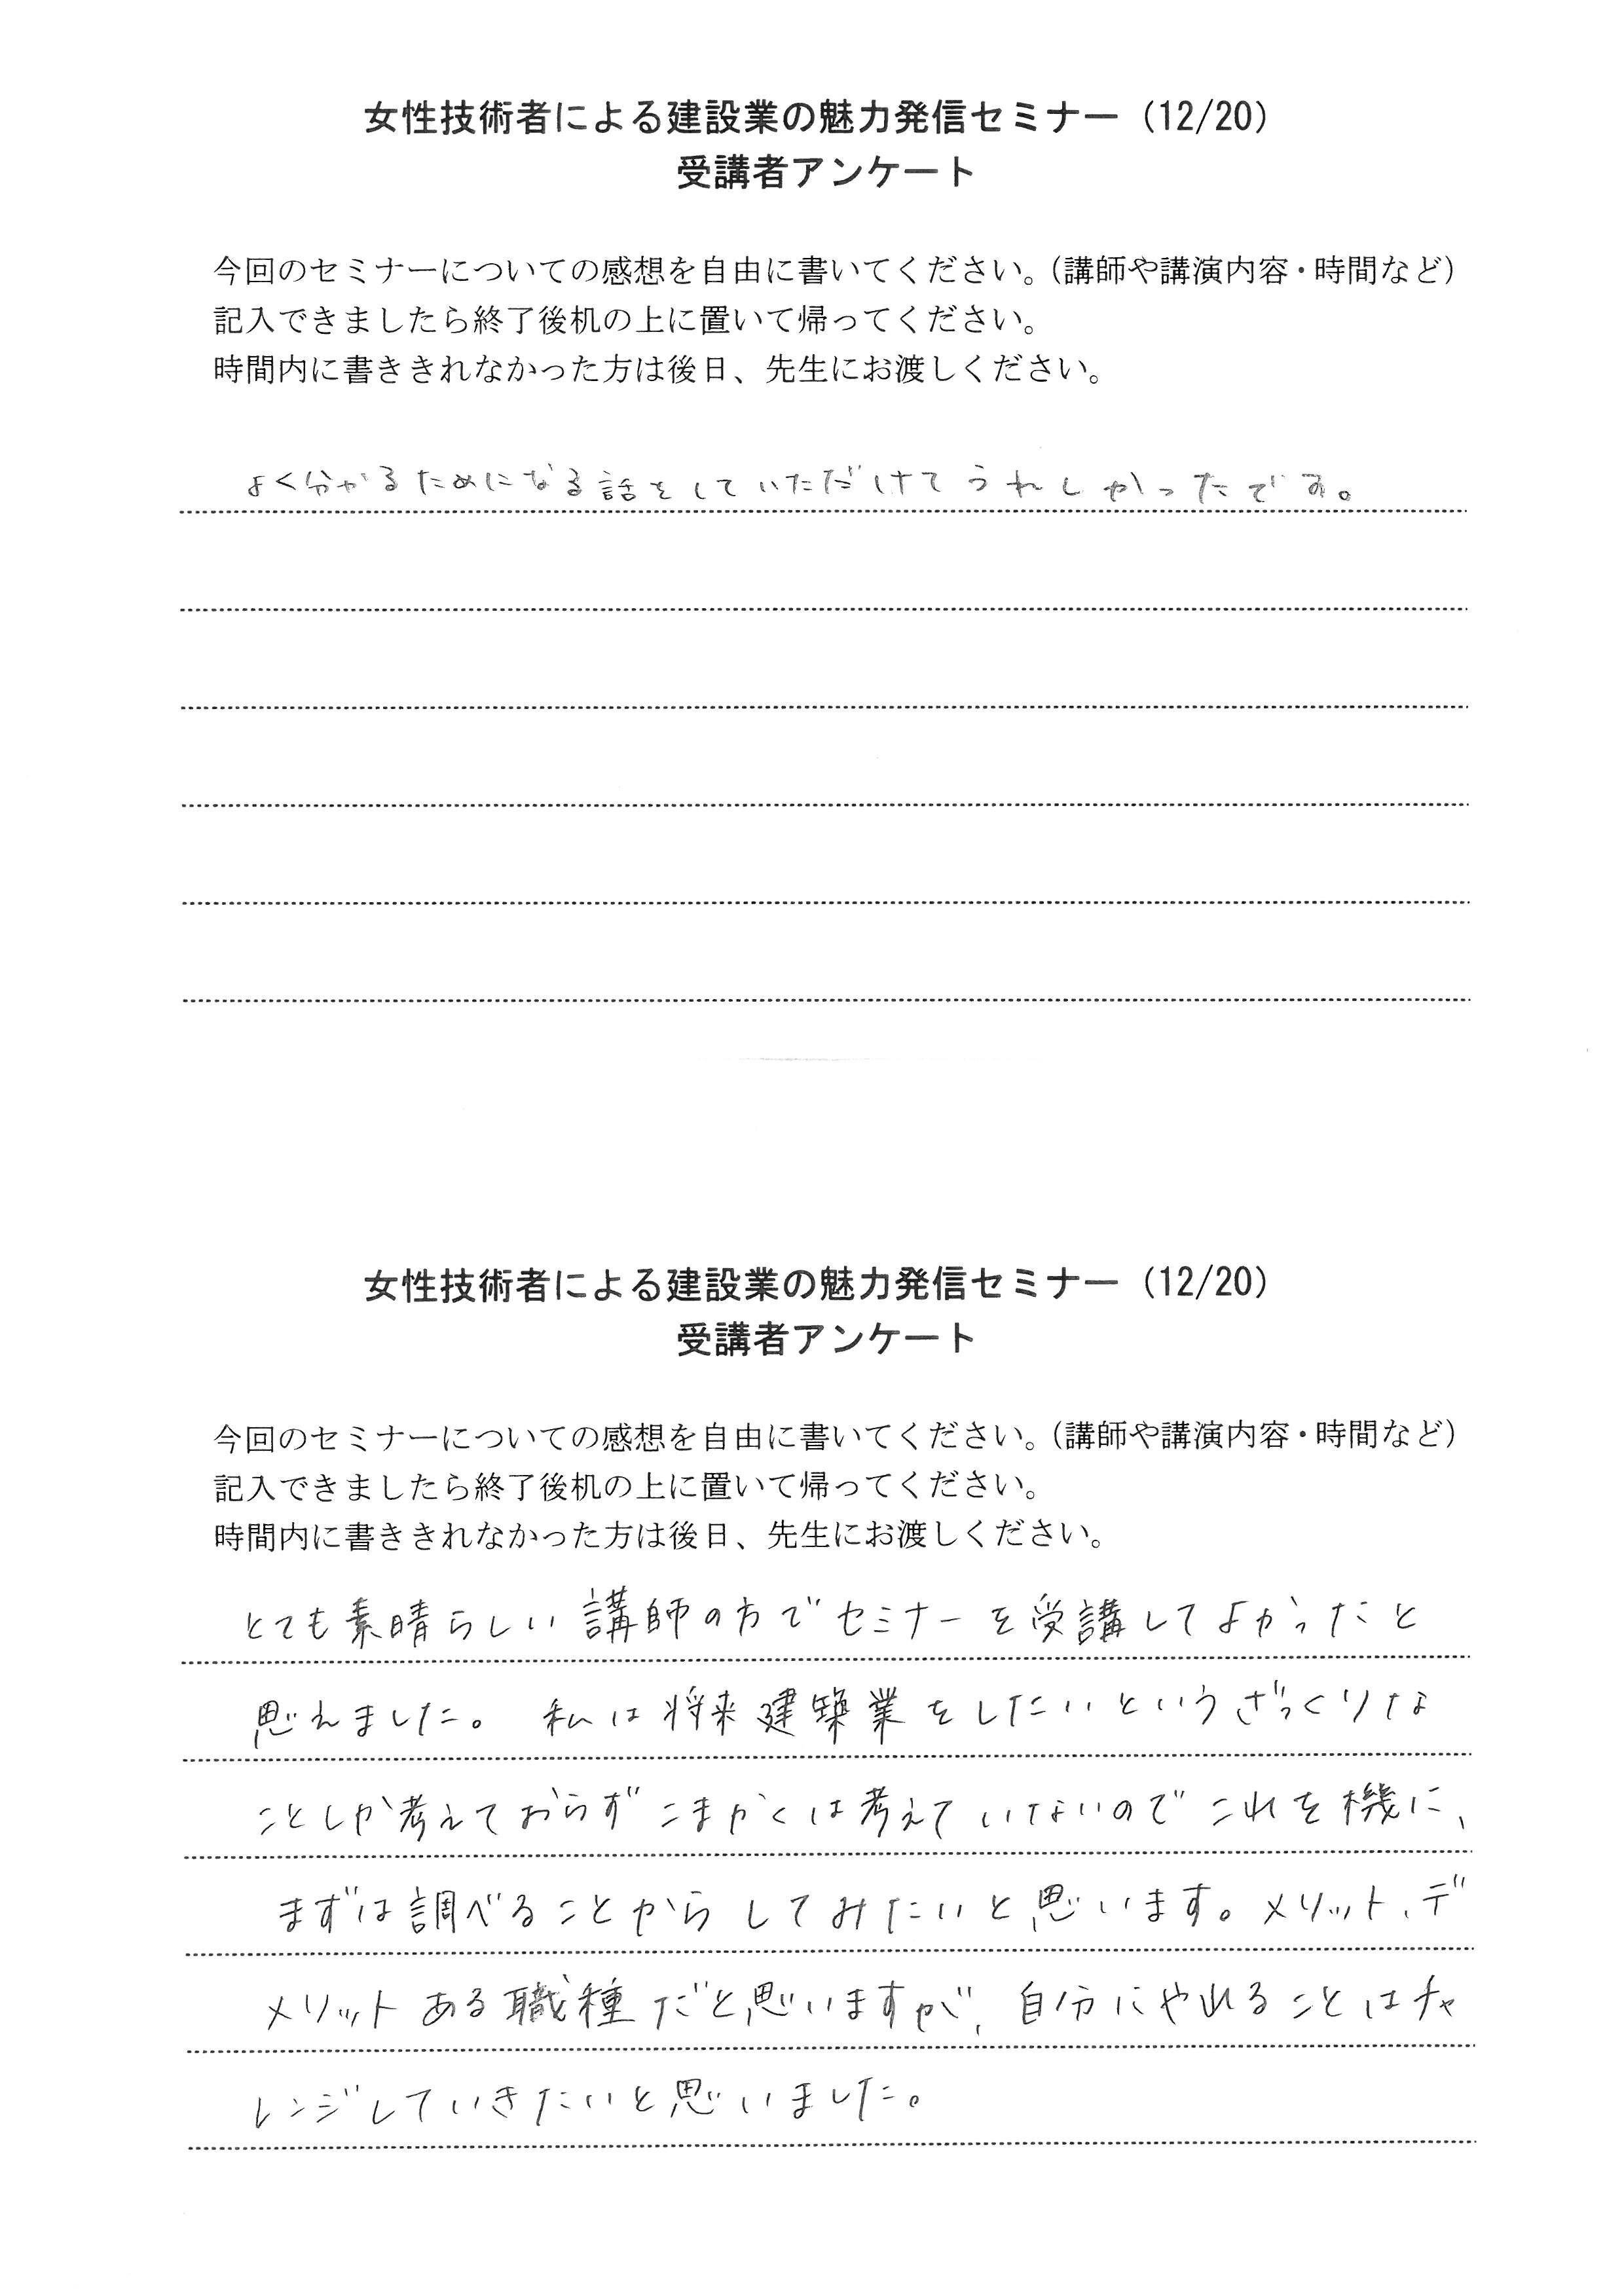 女性技術者による建設業の魅力発信セミナー（12/20）
受講者アンケート
今回のセミナーについての感想を自由に書いてください。（講師や講演内容・時間など）
記入できましたら終了後机の上に置いて帰ってください。
時間内に書ききれなかった方は後日、先生にお渡しください。
よく分かるためになる話をしていただけてうれしかったです。
女性技術者による建設業の魅力発信セミナー（12/20）
受講者アンケート
今回のセミナーについての感想を自由に書いてください。（講師や講演内容・時間など）
記入できましたら終了後机の上に置いて帰ってください。
時間内に書ききれなかった方は後日、先生にお渡しください。
とても素晴らしい講師の方でセミナーを受講してよかったと
思えました。私は将来建築業をしたいというざっくりな
ことしか考えておらずこまかくは考えていないのでこれを機に、
まずは調べることからしてみたいと思います。メリット、デ
メリットある職種だと思いますが、自分にやれることはチャ
レンジしていきたいと思いました。